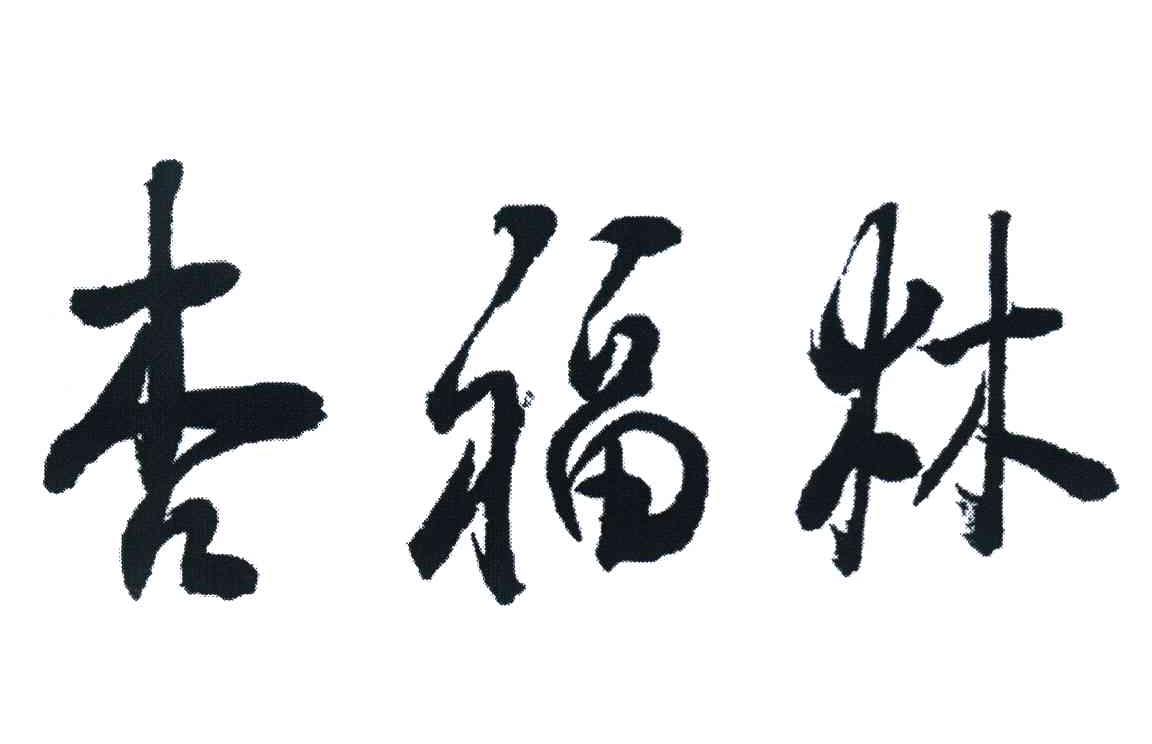 杏福林